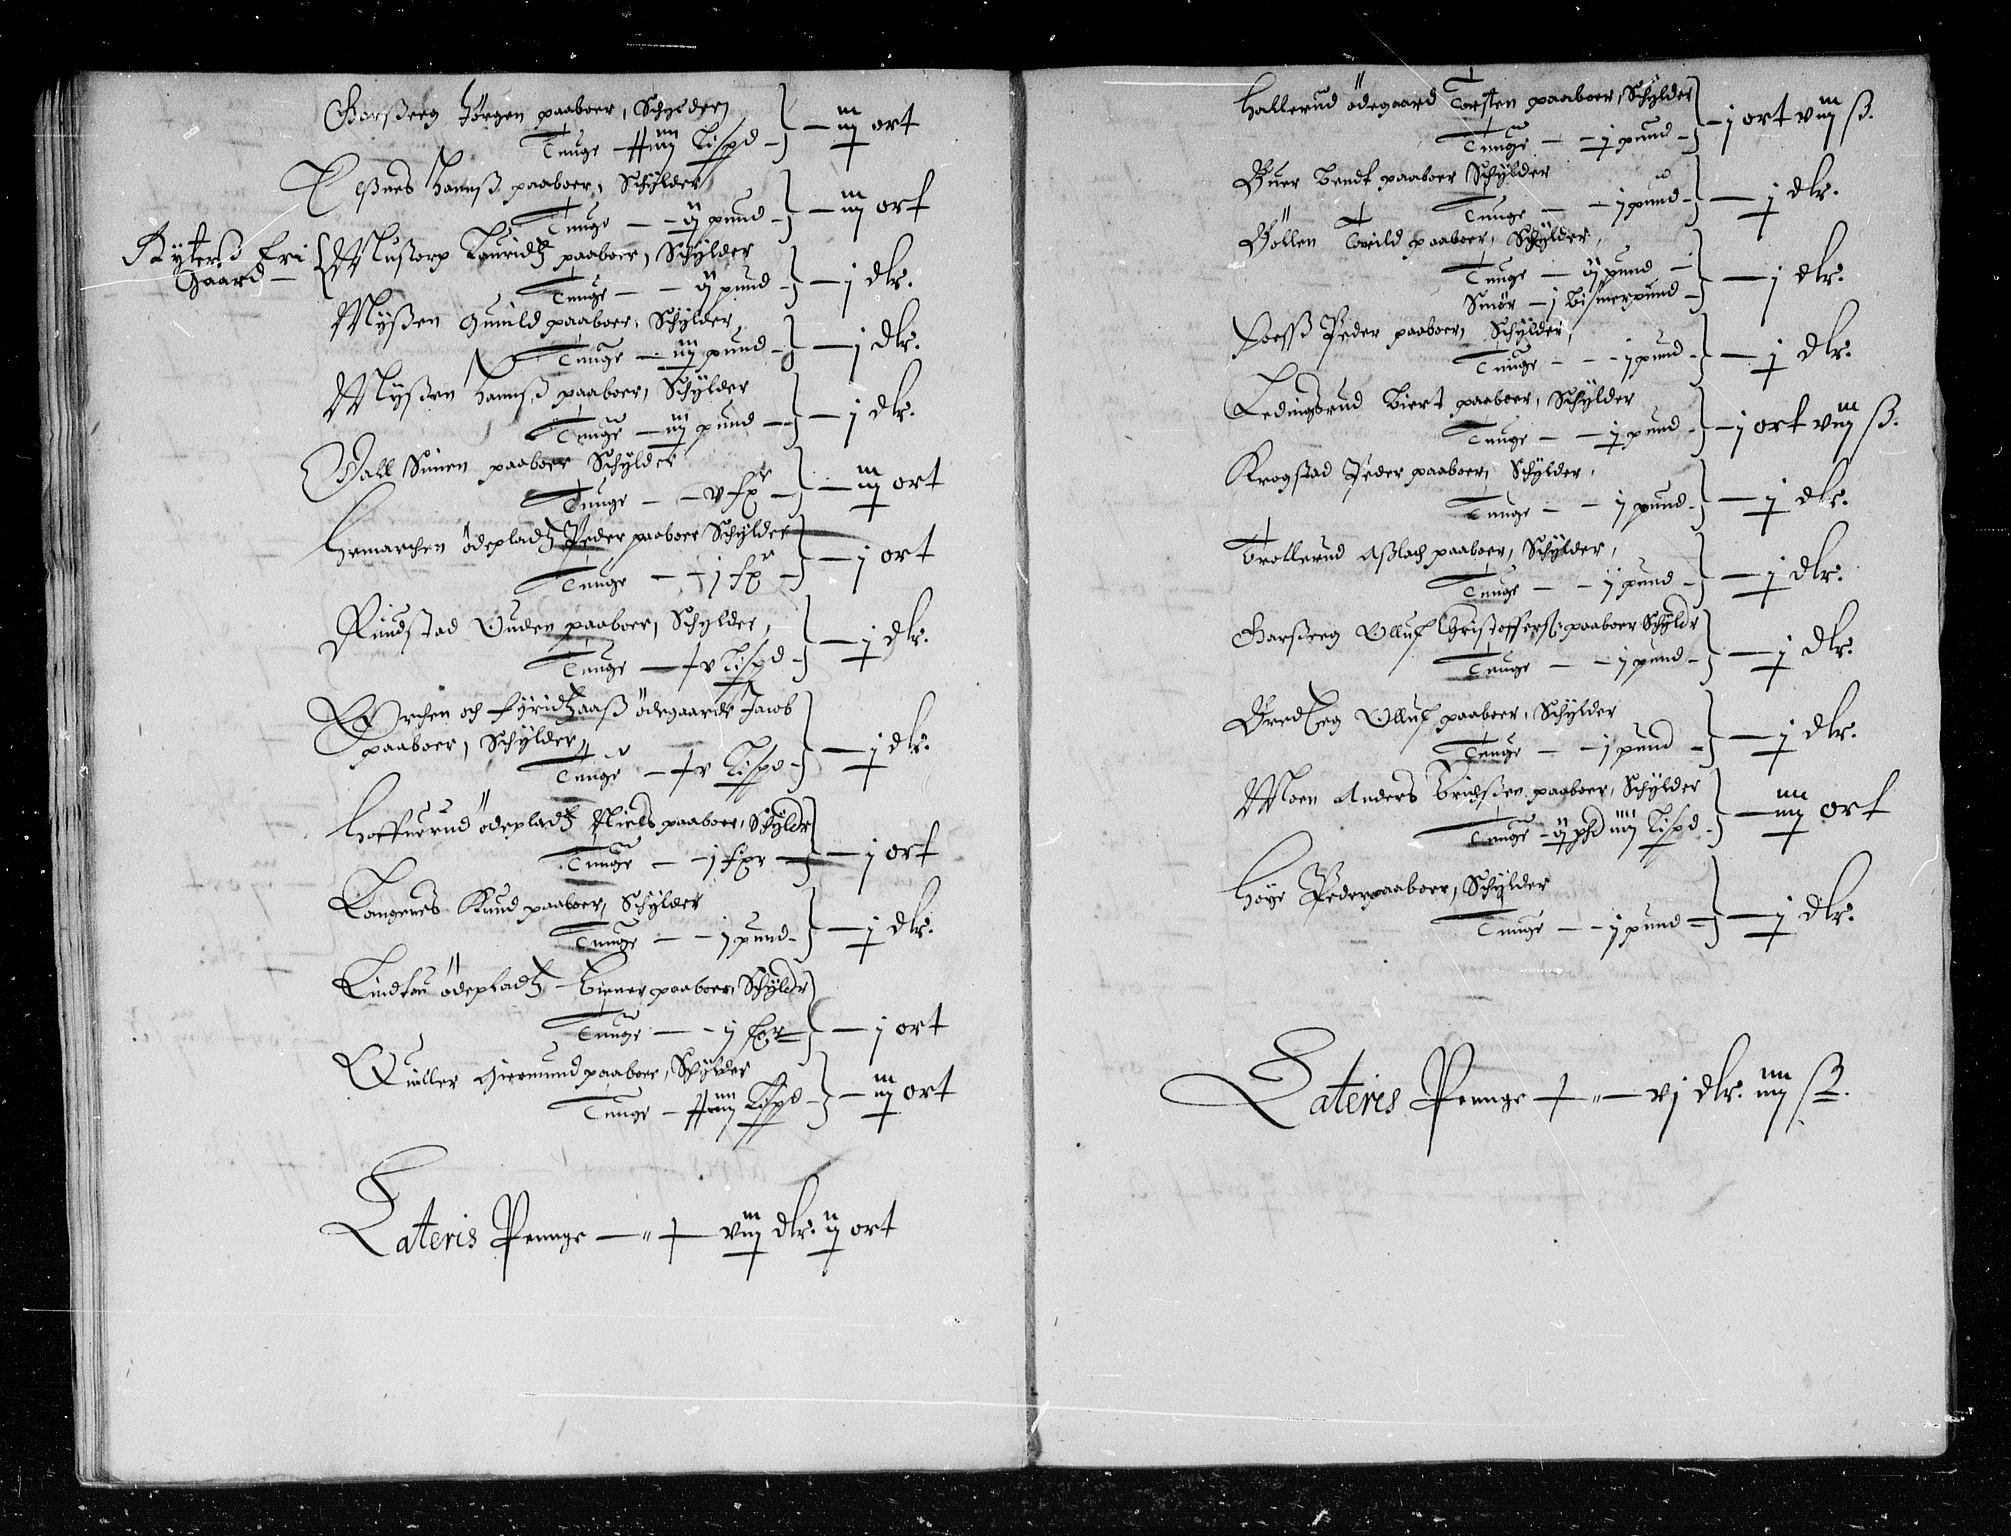 Garßeeg Jørgen paaboer, Schylder
Tunge — Lispd — iij ort
Eßnes Hannß paaboer, Schylder
Tunge — ij pund — iij ort
Rytterß Fri
Gaard —
Mußorp Lauridtz paaboer, Schylder
Tunge — ij pund — j dlr.
Mÿßen Gunild paaboer, Schylder
Tunge — iij pund — j dlr.
Mÿßen Hannß paaboer, Schylder
Tunge — iij pund — j dlr.
Vall Simen paaboer Schylder
Tunge — v fxr — iij ort
Hremarchen ødepladtz Peder paaboer Schylder
Tunge — j fxr — j ort
Rundstad Ouden paaboer, Schylder,
Tunge — v Lispd — j dlr.
Ørchen och Fyridtzaaß ødegaarde Jacob
paaboer, Schylder
Tunge — v Lispd — j dlr.
Hoffuerud ødepladtz Niels paaboer, Schyldr
Tunge — j fxr — j ort
Langenes Knud paaboer, Schylder
Tunge — j pund — j dlr.
Lindtou ødepladtz paaboer, Schyldr
Tunge — j fxr — j ort
Quiller Giermund paaboer, Schylder
Tunge — Lispd — iij ort
Lateris Pennge — viij dlr. ij ort
Hallerud ødegaard Torsten paaboer, Schylder
Tunge — j pund — j ort viij ß.
Buer Bendt paaboer Schylder
Tunge — j pund — j dlr.
Bøllen Toruild paaboer, Schylder,
Tunge — ij pund —
Smør — j Bismerpund — j dlr.
Foesß Peder paaboer, Schylder,
Tunge — j pund — j dlr.
Ledingsrud Biert paaboer, Schylder
Tunge — j pund — j ort viij ß.
Krogstad Peder paaboer, Schylder,
Tunge — j pund — j dlr.
Trollerud Aßlach paaboer, Schylder,
Tunge — j pund — j dlr.
Garßeeg Olluf Christoffersß. paaboer Schyldr
Tunge — j pund — j dlr.
Olluf paaboer, Schylder
Tunge — j pund — j dlr.
Moen Anders Erichßen paaboer, Schylder
Tunge — ij pd iiij Lispd — iiij ort
Høye Peder paaboer, Schylder
Tunge — j pund — j dlr.
Lateris Pennge — vj dlr. iiij ß.